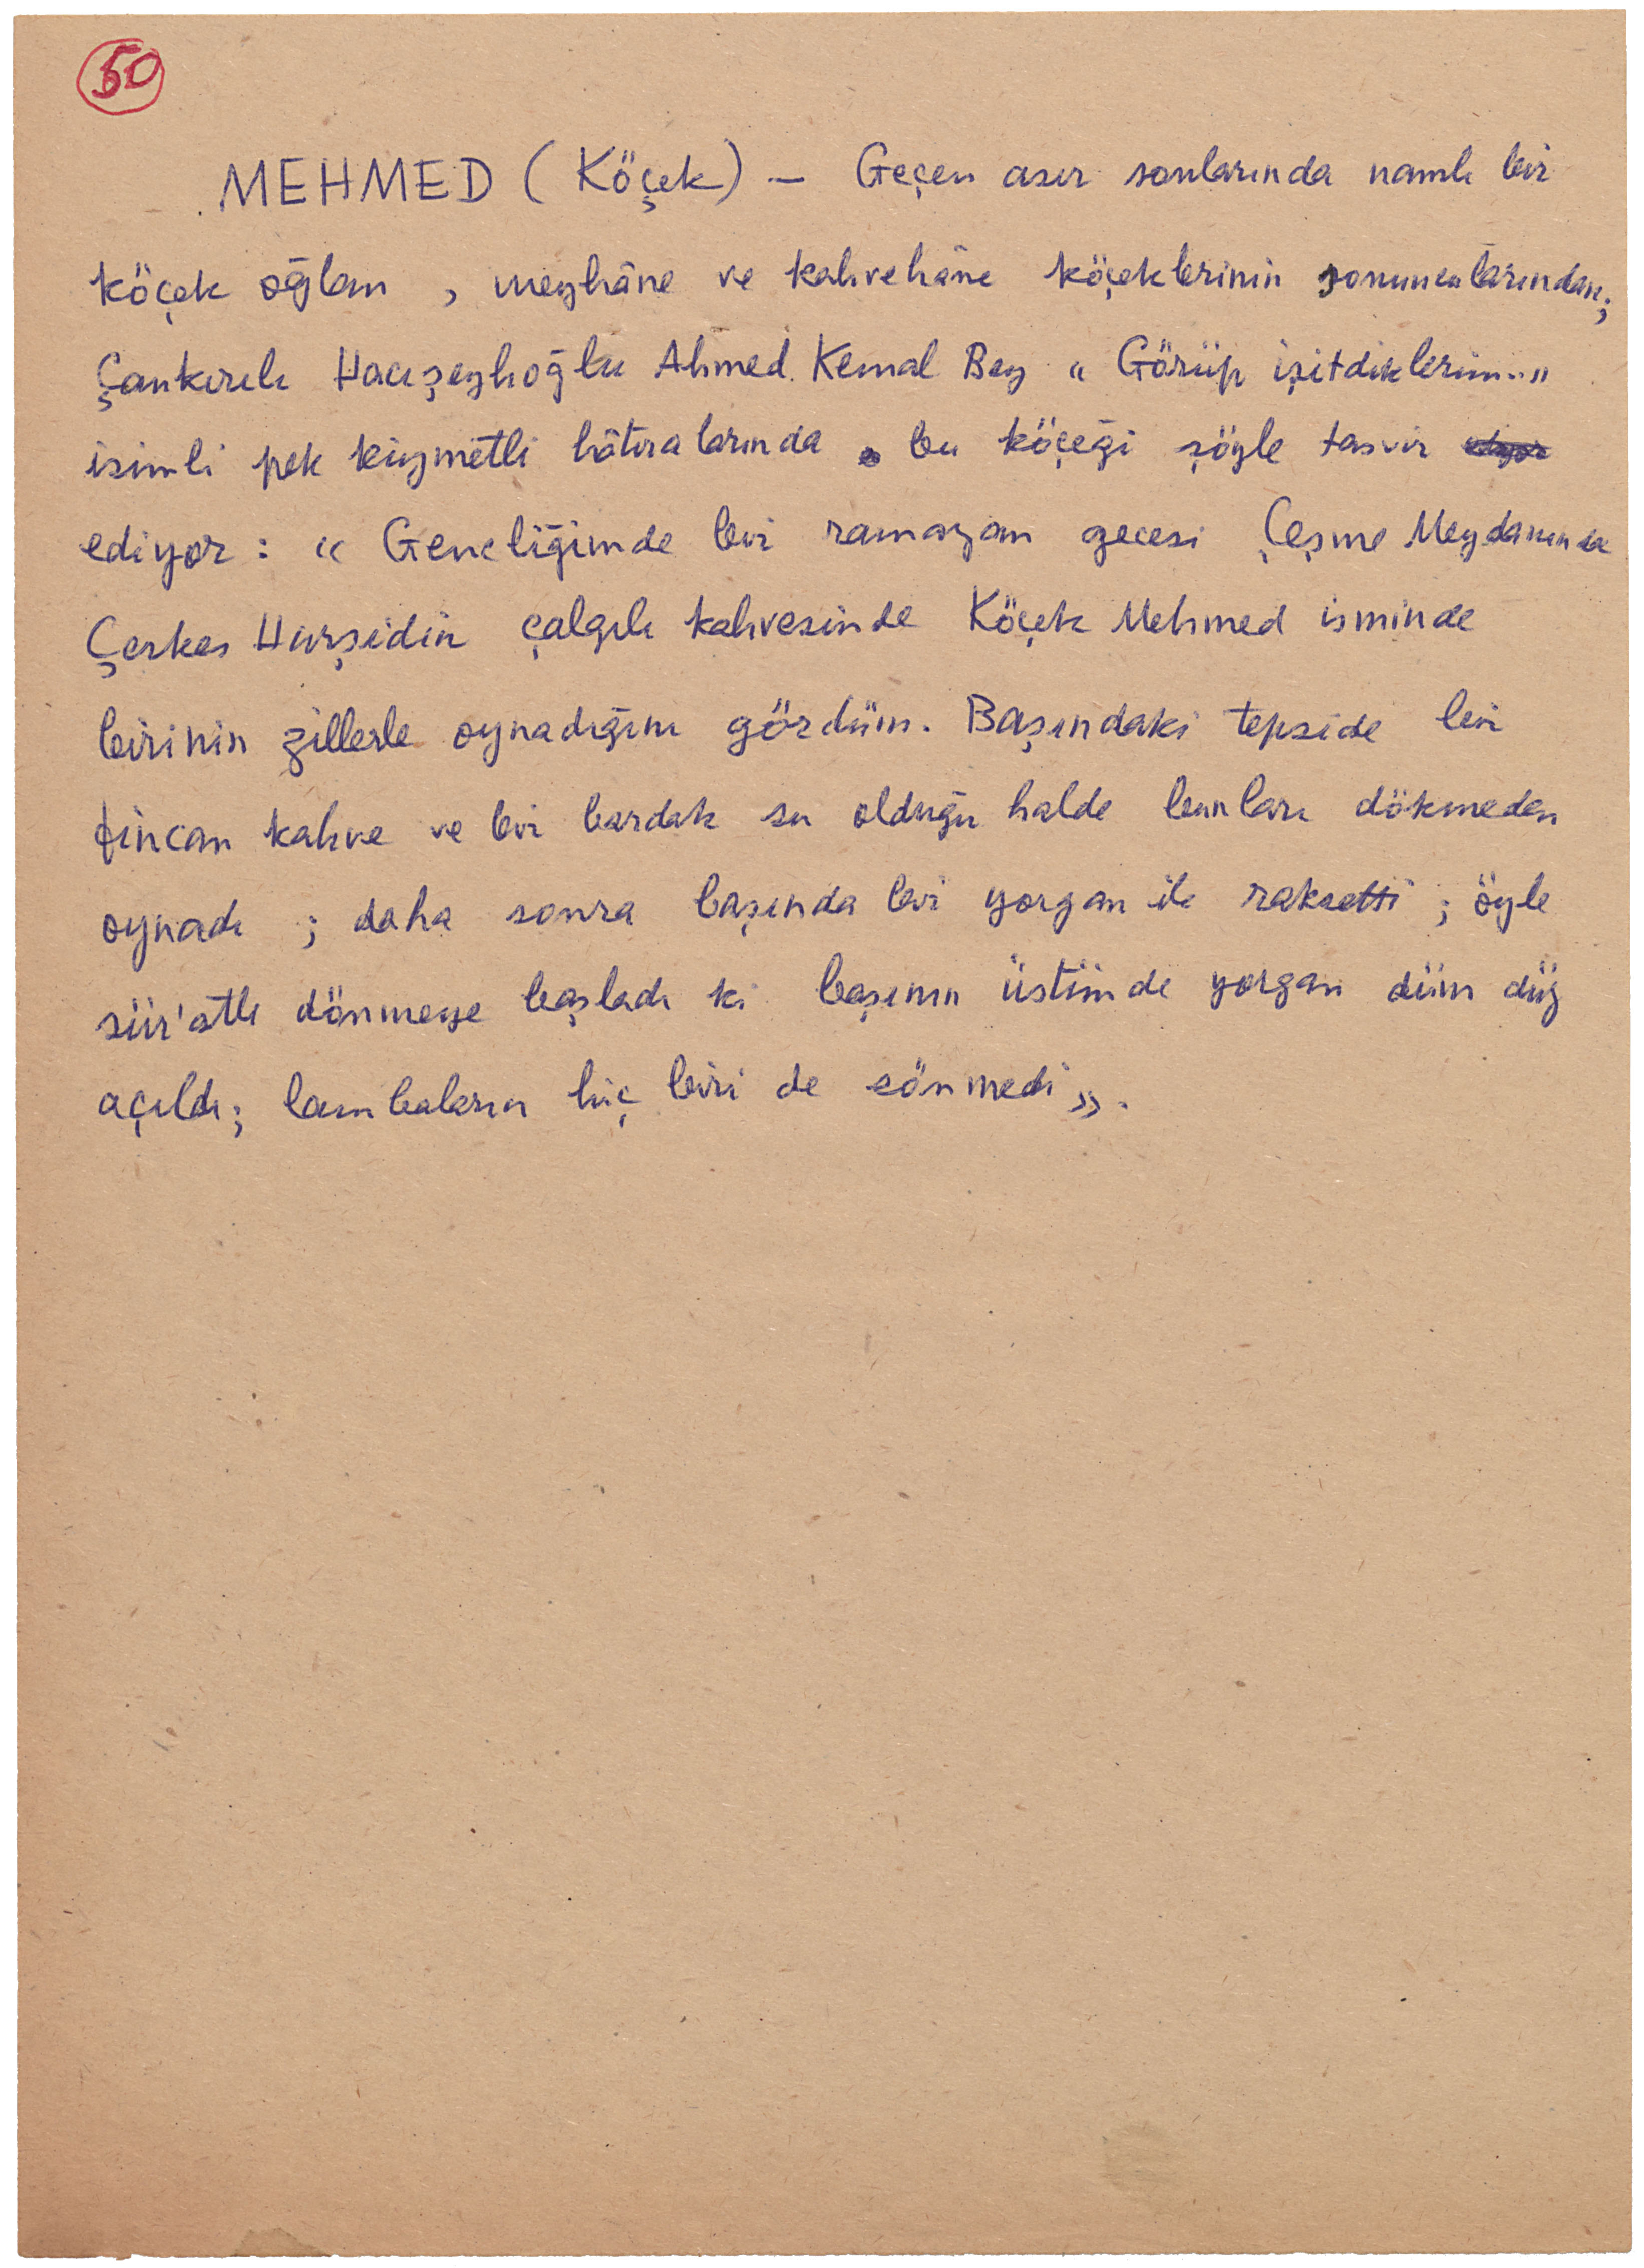 50
MEHMED (Köçek) — Geçen asır sonlarında namlı bir
köçek oğlan , meyhâne ve kahvehâne köçeklerinin sonuncularından;
Çankırılı Hacışeyhoğlu Ahmed Kemal Bey "Görüp işitdiklerim.."
isimli pek kıymetli hâtıralarında bu köçeği şöyle tasvir
ediyor : « Gençliğimde bir ramazan gecesi Çeşme Meydanında
Çerkes Hurşidin çalgılı kahvesinde Köçek Mehmed isminde
birinin zillerle oynadığını gördüm. Başındaki tepside bir
fincan kahve ve bir bardak su olduğu halde bunları dökmeden
oynadı ; daha sonra başında bir yorgan ile raksetti ; öyle
sür'atle dönmeye başladı ki başının üstünde yorgan düm düz
açıldı; lambaların hiç biri de sönmedi».